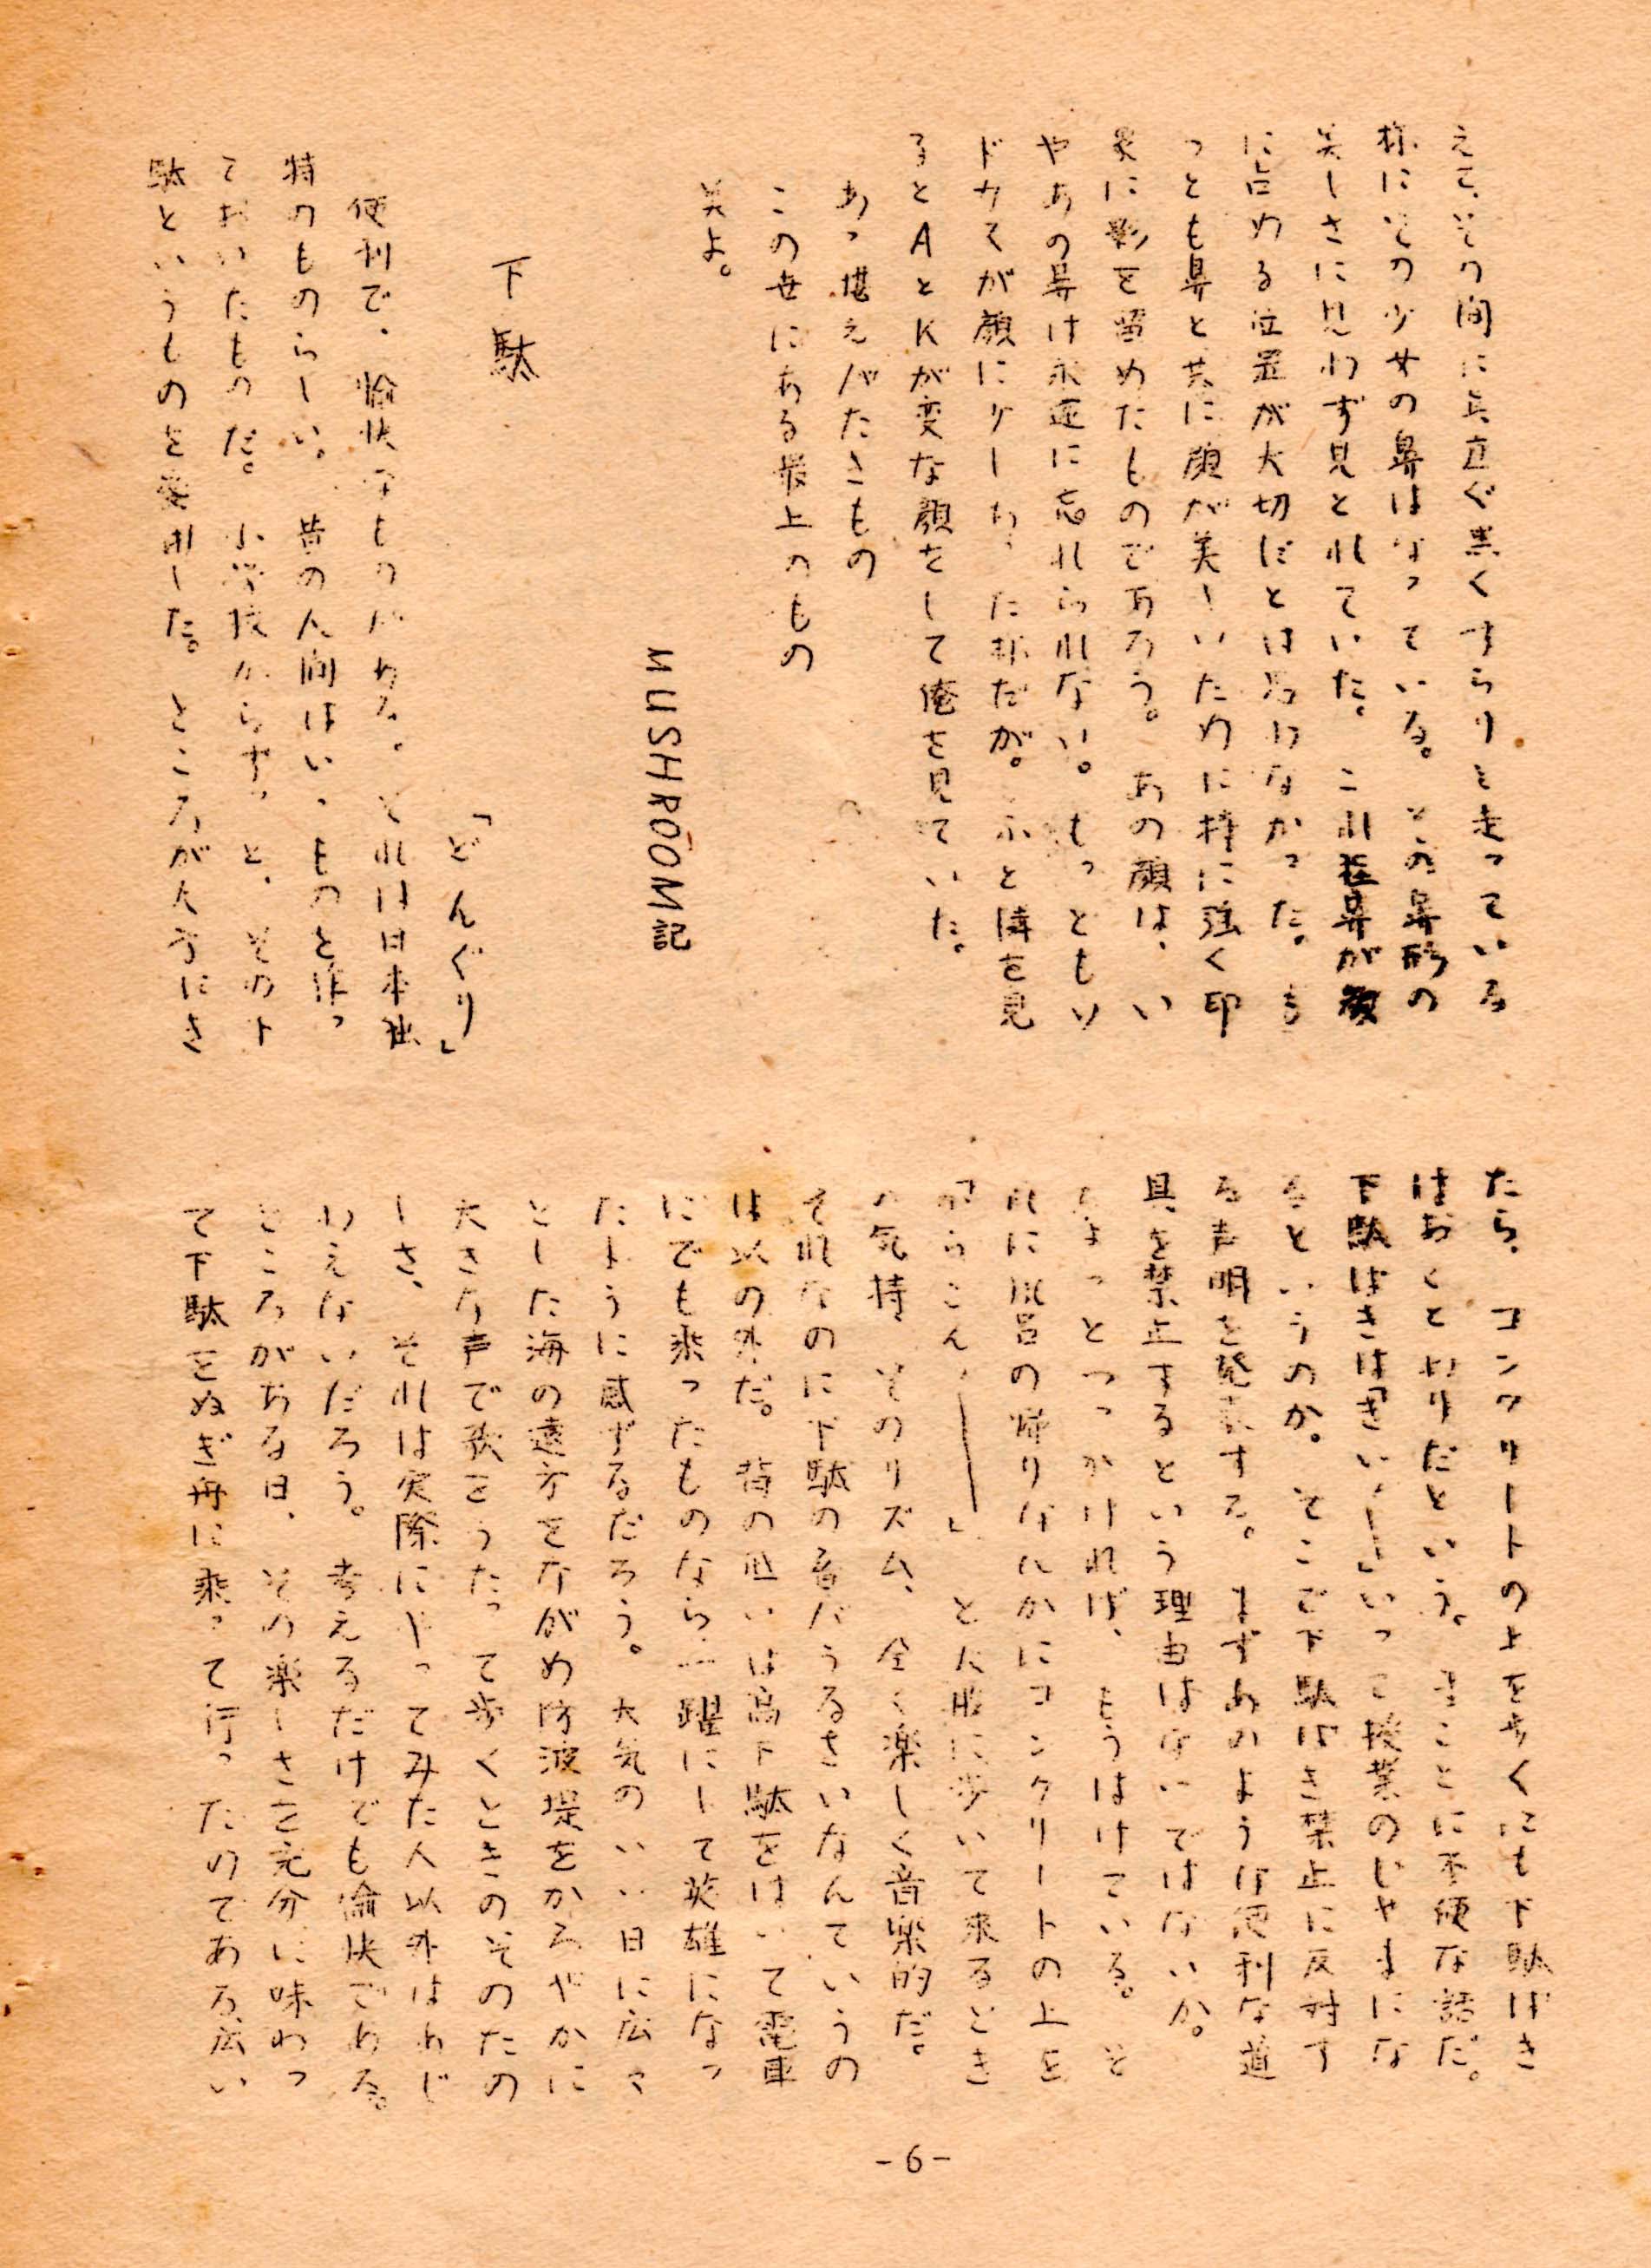 えて、その間に真直ぐ黒くすらりと走っている
様にその少女の鼻はなっている。その鼻形の
美しさに思わず見とれていた。これ程鼻が顔
に占める位置が大切だとは思わなかった。も
っとも鼻と共に顔が美しいために特に強く印
象に影を留めたものであろう。あの顔は、い
やあの鼻は永遠に忘れられない。もっともソ
ドカスが顔に少しあった様だが。ふと隣を見
るとAとKが変な顔をして俺を見ていた。
あゝ堪えがたきもの
この世にある最上のもの
美よ。
MUSHROOM記
下駄
「どんぐり」
便利で、愉快なものがある。それは日本独
特のものらしい。昔の人間はいゝものを作っ
ておいたものだ。小学校からずっと、その下
駄というものを愛用した。ところが大学にき
たら、コンクリートの上を歩くにも下駄ばき
はおことわりだという。まことに不便な話だ。
下駄ばきは「きいゝ――」いって授業のじゃまにな
るというのか。そこで下駄ばき禁止に反対す
る声明を発表する。まずあのような便利な道
具を禁止するという理由はないではないか。
ちょっとつっかければ、もうはけている。そ
れに風呂の帰りなんかにコンクリートの上を
「からこんゝ――」と大股に歩いて来るとき
の気持、そのリズム、全く楽しく音楽的だ。
それなのに下駄の音がうるさいなんていうの
は以の外だ。背の低い は高下駄をはいて電車
にでも乗ったものなら、一躍にして英雄になっ
たように感ずるだろう。大気のいい日に広々
とした海の遠方をながめ防波堤をかろやかに
大きな声で歌をうたって歩くときのそのたの
しさ、それは実際にやってみた人以外はあじ
わえないだろう。考えるだけでも愉快である。
ところがある日、その楽しさを充分に味わっ
て下駄をぬぎ舟に乗って行ったのである。広い
-6-